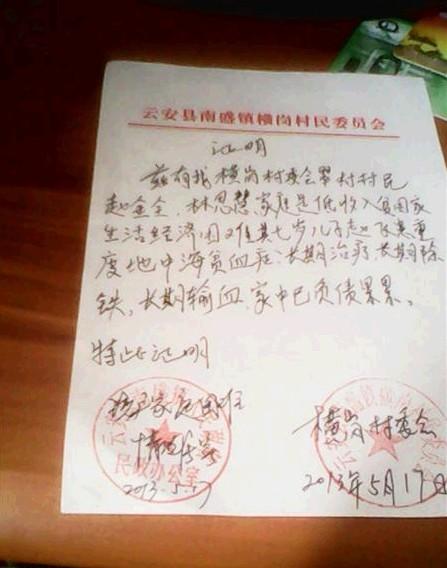 云安县南盛镇横岗村民委员会
证明
兹有我横岗村委会翠村村民
赵金全、林思慧家庭是低收入贫困家
生活经济困难其七岁儿子赵 患重
度地中海贫血症、长期治疗、长期除
铁，长期输血，家中已负债累累。
特此证明
家庭困难
情况属实
民政办公室
2013.5.17
横岗村委会
2013年5月17日